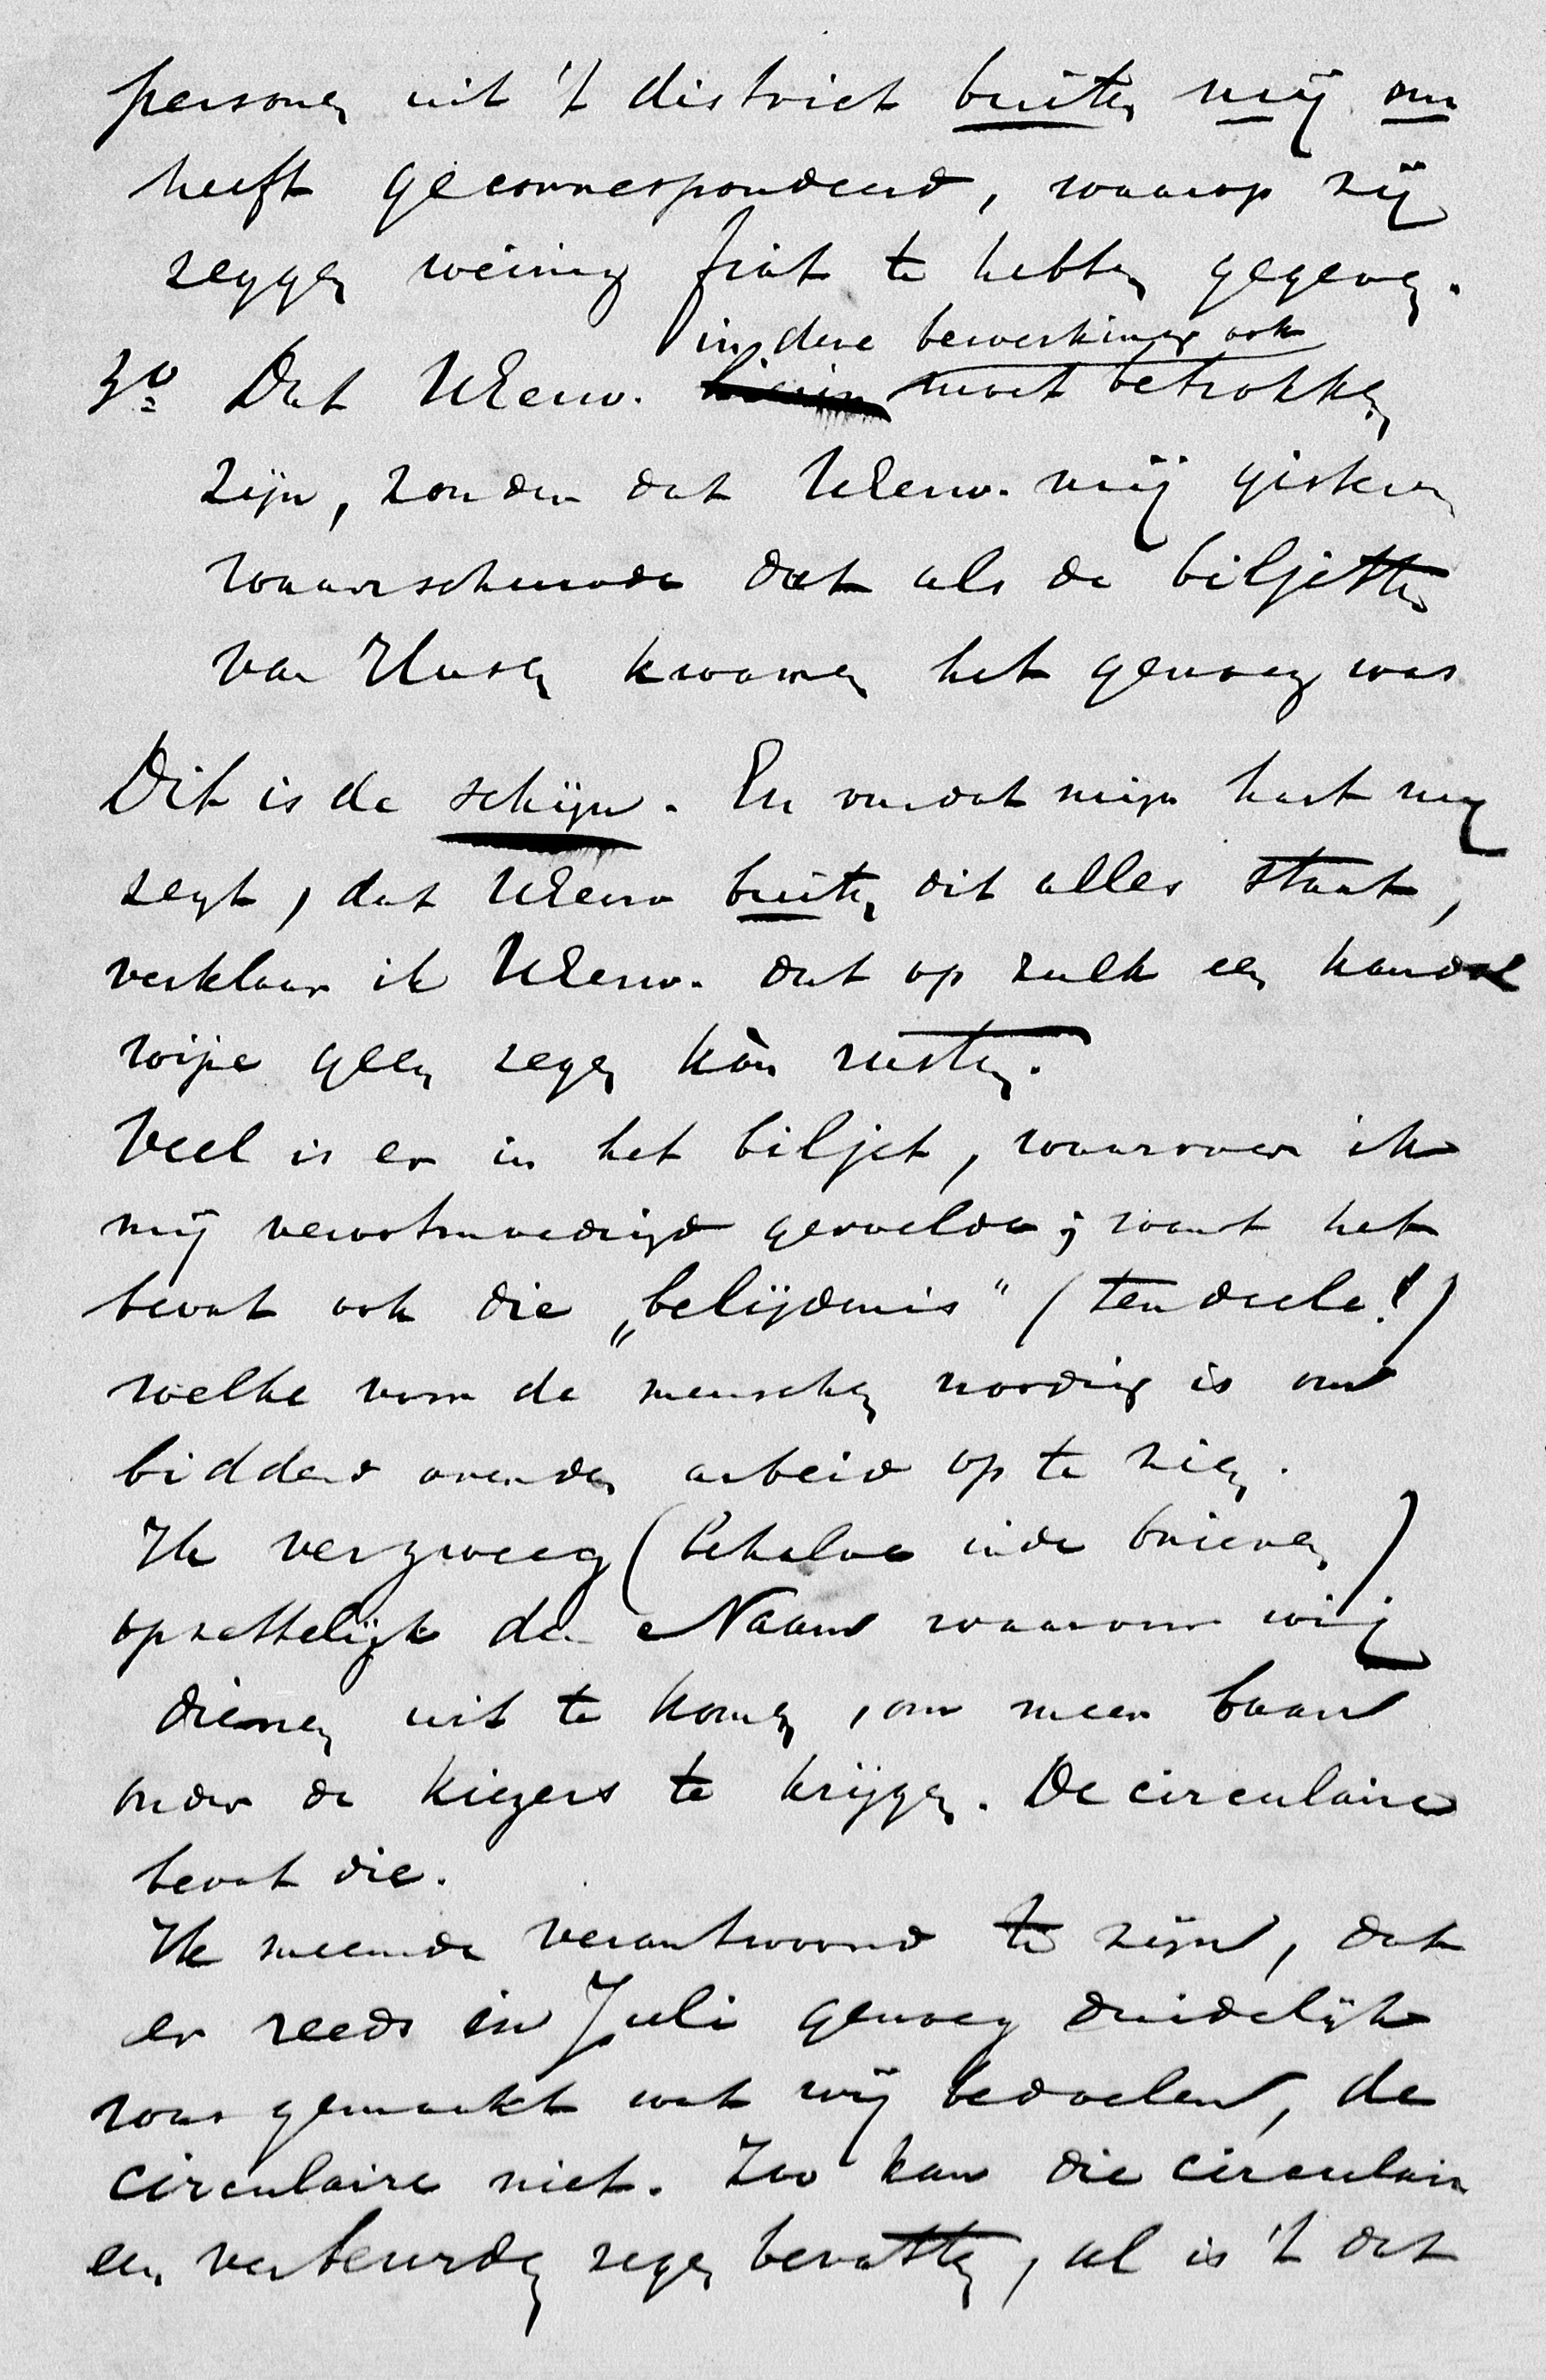 personen uit 't district buiten mij om
heeft gecorrespondeerd, waarop zij
zeggen weinig fiat te hebben gegeven.
in deze bewerking ook
3o Dat UEerw. hierin moet betrokken
zijn, zonder dat UEerw. mij gisteren
waarschuwde dat als de biljetten
van Husen kwamen het genoeg was
Dit is de schijn. En omdat mijn hart mij
zegt, dat UEerw buiten dit alles staat,
verklaar ik UEerw. dat op zulk een handel
wijze geen zegen kàn rusten.
Veel is er in het biljet, waarover ik
mij verootmoedigd gevoelde; want het
bevat ook die „belijdenis" (ten deele!)
welke voor de menschen noodig is om
biddend over den arbeid op te zien.
Ik verzweeg (behalve in de brieven)
opzettelijk den Naam waarvoor wij
dienen uit te komen, om meer baan
onder de kiezers te krijgen. De circulaire
bevat die.
Ik meende verantwoord te zijn, dat
er reeds in Juli genoeg duidelijk
was gemaakt wat wij bedoelen, de
circulaire niet. Zoo kan die circulaire
een verbeurden zegen bevatten, al is 't dat